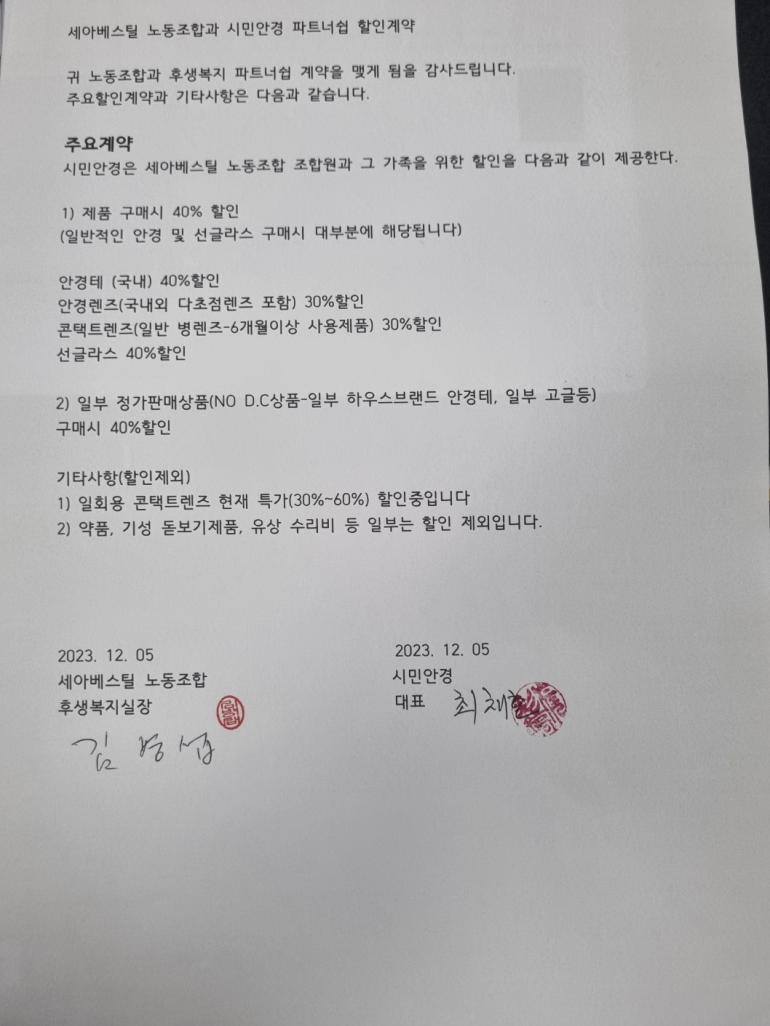 세아베스틸 노동조합과 시민안경 파트너쉽 할인계약
귀 노동조합과 후생복지 파트너쉽 계약을 맺게 됨을 감사드립니다.
주요할인계약과 기타사항은 다음과 같습니다.
주요계약
시민안경은 세아베스틸 노동조합 조합원과 그 가족을 위한 할인을 다음과 같이 제공한다.
1) 제품 구매시 40% 할인
(일반적인 안경 및 선글라스 구매시 대부분에 해당됩니다)
안경테 (국내) 40%할인
안경렌즈(국내외 다초점렌즈 포함) 30%할인
콘택트렌즈(일반 병렌즈-6개월이상 사용제품) 30%할인
선글라스 40%할인
2) 일부 정가판매상품(NO D.C상품-일부 하우스브랜드 안경테, 일부 고글등)
구매시 40%할인
기타사항(할인제외)
1) 일회용 콘택트렌즈 현재 특가(30%~60%) 할인중입니다
2) 약품, 기성 돋보기제품, 유상 수리비 등 일부는 할인 제외입니다.
2023. 12. 05
세아베스틸 노동조합
후생복지실장
김
2023. 12. 05
시민안경
대표 최